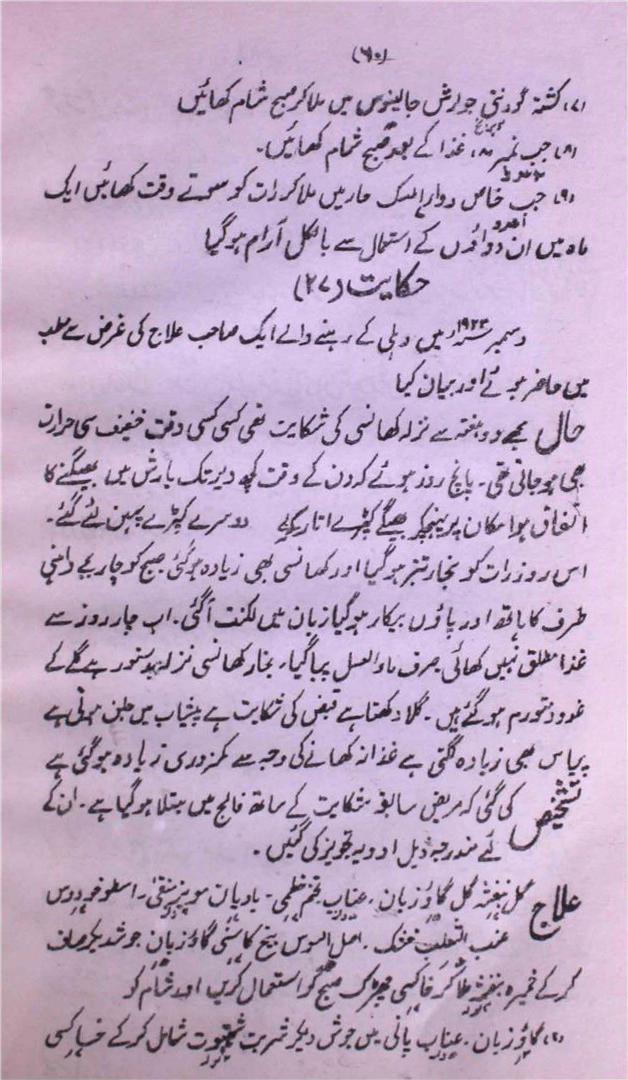 (۶۰)
(۷) کشتہ گودنتی جوارش جالینوس میں ملا کر صبح شام کھائیں
(۸) حب نمبر ۸۰، غذا کے بعد صبح شام کھائیں۔
(۹) حب خاص دواء المسک حار میں ملا کر رات کو سوتے وقت کھائیں ایک
ماہ میں ان دواؤں کے استعمال سے بالکل آرام ہو گیا
حکایت (۲۷)
دسمبر ۱۹۲۳ء میں دہلی کے رہنے والے ایک صاحب علاج کی غرض سے مطب
میں حاضر ہوئے اور بیان کیا
حال مجھے دو ہفتہ سے نزلہ کھانسی کی شکایت تھی کسی کسی وقت خفیف سی حرارت
بھی ہو جاتی تھی۔ پانچ روز ہوئے کہ دن کے وقت کچھ دیر تک بارش میں بھیگنے کا
اتفاق ہوا مکان پر پہنچکر بھیگے کپڑے اتار کر دوسرے کپڑے پہن لئے گئے۔
اس روز رات کو بخار تیز ہو گیا اور کھانسی بھی زیادہ ہو گئی صبح کو جاگے داہنی
طرف کا ہاتھ اور پاؤں بیکار ہو گیا زبان میں لکنت آ گئی۔ اب چار روز سے
غذا مطلق نہیں کھائی صرف ماء العسل پیا گیا، بخار کھانسی نزلہ بدستور ہے گلے کے
غدود متورم ہو گئے ہیں۔ گلا دکھتا ہے قبض کی شکایت ہے پیشاب میں جلن ہوتی ہے
پیاس بھی زیادہ لگتی ہے غذا نہ کھانے کی وجہ سے کمزوری زیادہ ہو گئی ہے
تشخیص کی گئی کہ مریض سابقہ شکایت کے ساتھ فالج میں مبتلا ہو گیا ہے۔ ان کے
لئے مندرجہ ذیل ادویہ تجویز کی گئیں۔
علاج گل بنفشہ گل گاؤزبان۔ عناب تخم خطمی۔ بادیان مویز منقیٰ۔ اسطوخودوس
عنب الثعلب خشک۔ اصل السوس بیخ کاسنی گاؤزبان جوش دیکر صاف
کر کے خمیرہ بنفشہ ملا کر خاکسی چھڑک صبح کو استعمال کریں اور شام کو
(۲) گاؤزبان۔ عناب پانی میں جوش دیکر شربت شہتوت شامل کر کے خاکسی